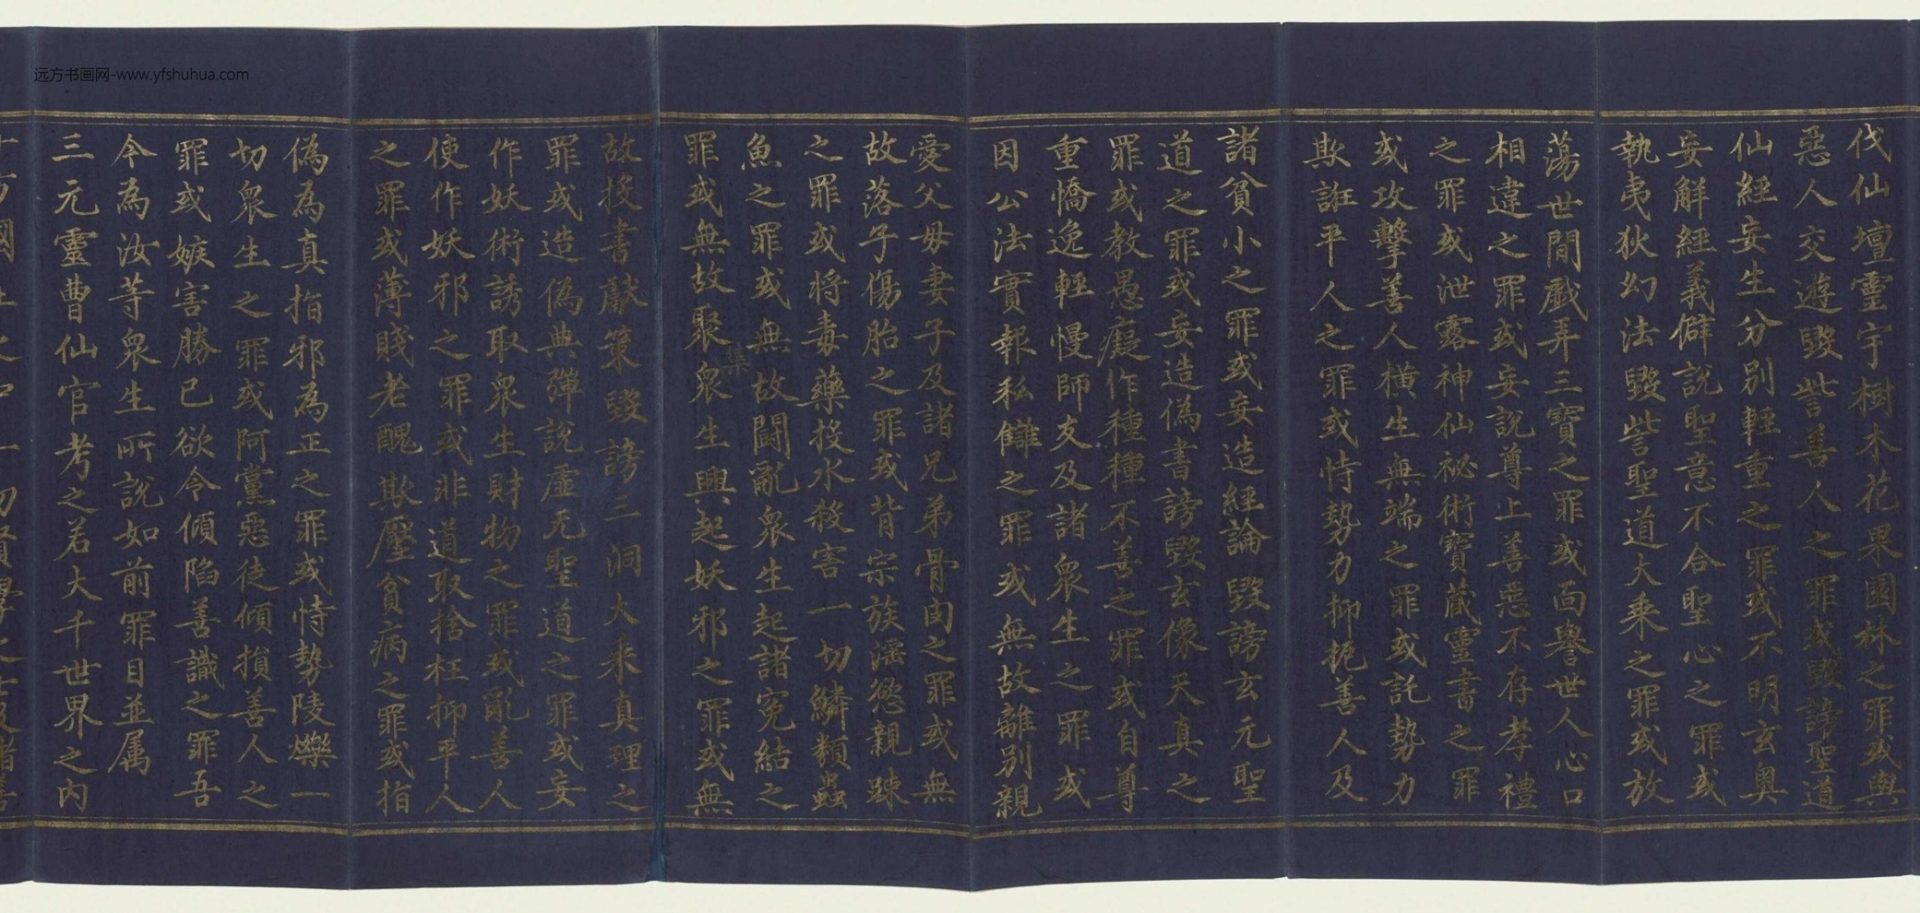 远方书画网-www.yfshuhua.com
伐仙壇靈宇樹木花果園林之罪或與
惡人交遊毀訾善人之罪或毀謗聖道
仙經妄生分別輕重之罪或不明玄奧
妄解經義僻說聖意不合聖心之罪或
執夷狄幻法毀訾聖道大乘之罪或放
蕩世間戲弄三寶之罪或面譽世人心口
相違之罪或妄說尊上善惡不存孝禮
之罪或泄露神仙祕術寶藏靈書之罪
或攻擊善人橫生無端之罪或託勢力
欺誑平人之罪或恃勢力抑扼善人及
諸貧小之罪或妄造經論毀謗玄元聖
道之罪或妄造偽書謗毀玄像天真之
罪或教愚癡作種種不善之罪或自尊
重憍逸輕慢師友及諸眾生之罪或
因公法實報私讎之罪或無故離別親
愛父母妻子及諸兄弟骨肉之罪或無
故落子傷胎之罪或背宗族滛慾親踈
之罪或將毒藥投水殺害一切鱗類蟲
魚之罪或無故鬪亂眾生起諸冤結之
罪或無故聚眾生興起妖邪之罪或無
故投書獻策毀謗三洞大乘真理之
罪或造偽典彈說虛无聖道之罪或妄
作妖術誘取眾生財物之罪或亂善人
使作妖邪之罪或非道取捨枉抑平人
之罪或薄賤老醜欺壓貧病之罪或指
偽為真指邪為正之罪或恃勢陵爍一
切眾生之罪或阿黨惡徒傾損善人之
罪或嫉害勝己欲令傾陷善識之罪吾
今為汝等眾生所說如前罪目並属
三元靈曹仙官考之若大千世界之内